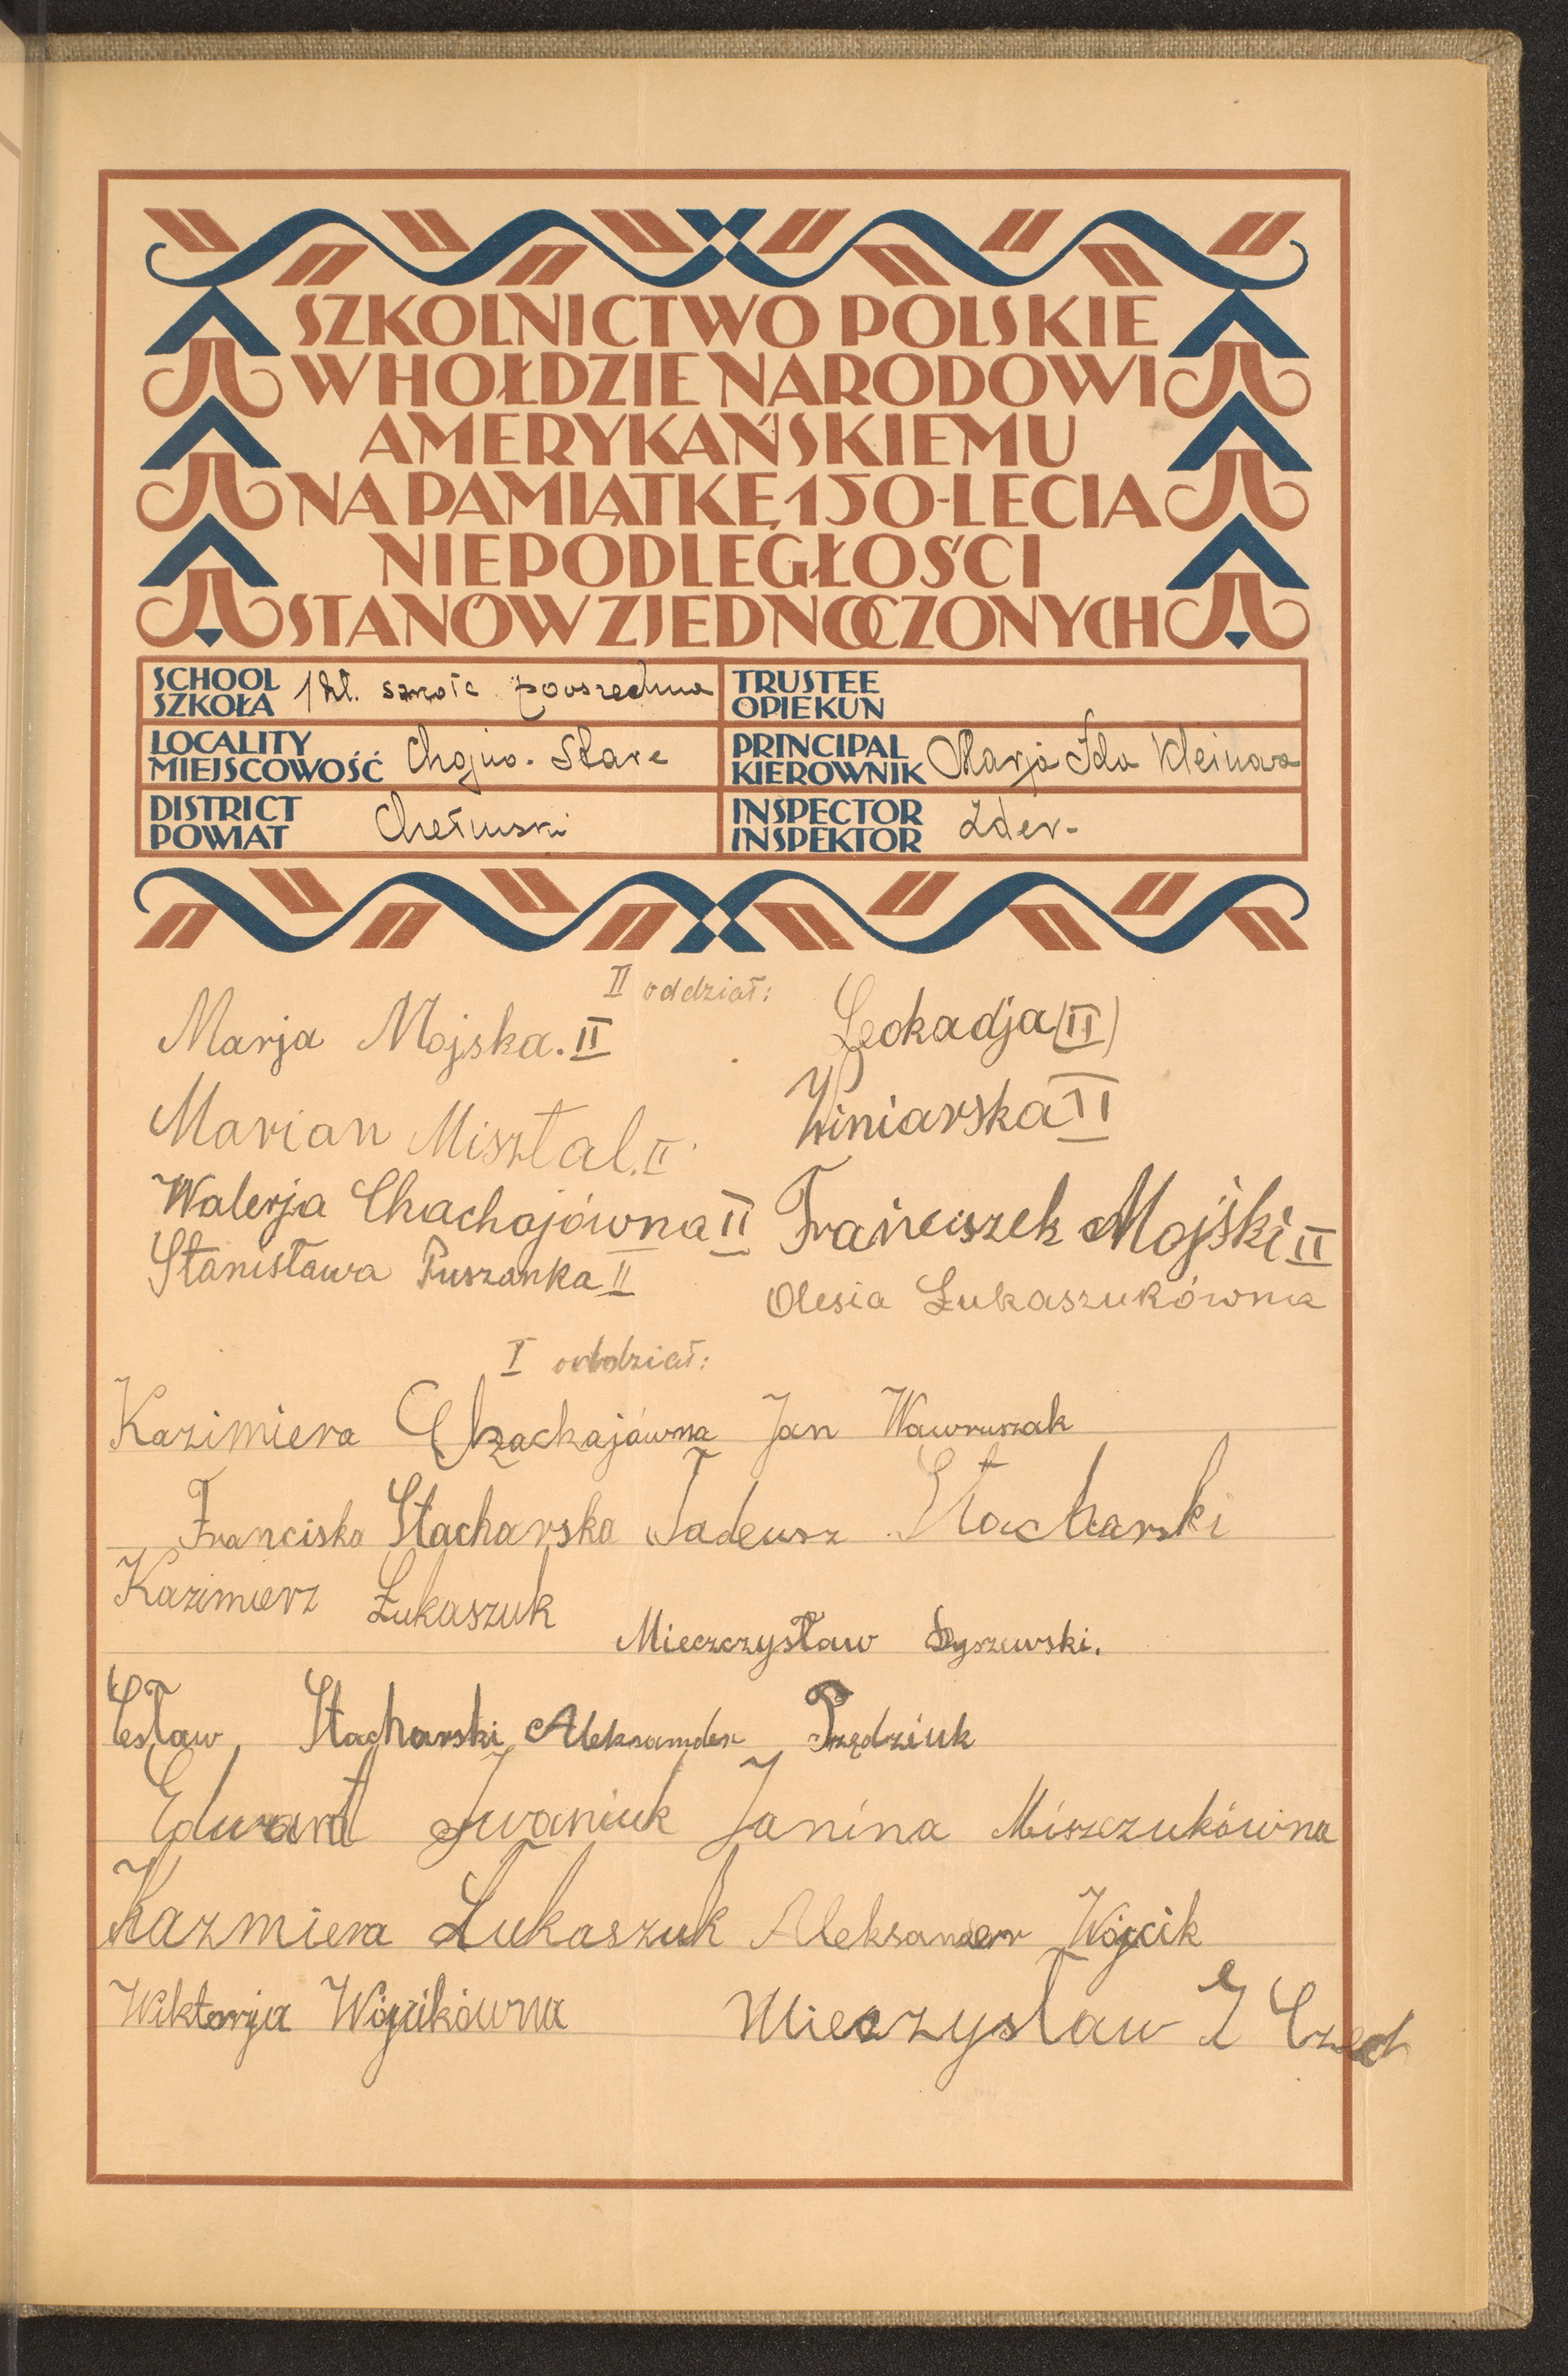 SZKOLNICTWO POLSKIE
W HOŁDZIE NARODOWI
AMERYKAŃSKIEMU
NA PAMIĄTKĘ 150-LECIA
NIEPODLEGŁOŚCI
STANÓW ZJEDNOCZONYCH
SCHOOL
SZKOŁA
1 kl. szkoła powszechna
TRUSTEE
OPIEKUN
LOCALITY
MIEJSCOWOŚĆ
Chojno-Stare
PRINCIPAL
KIEROWNIK
Marja Ida Kleinowa
DISTRICT
POWIAT
Chełmski
INSPECTOR
INSPEKTOR
II oddział:
Marja Mojska. II
Leokadja (II)
Winiarska II
Marian Misztal. II
Walerja Chachajówna II
Franciszek Mojski II
Stanisława Puszanka II
Olesia Łukaszukówna
I oddział:
Kazimiera Chachajówna Jan Wawruszak
Franciska Stacharska Tadeusz Stacharski
Kazimierz Łukaszuk
Mieczczysław Dyszewski.
Cesław Stacharski Aleksander Prządziuk
Edward Iwaniuk Janina Miszczukówna
Kazmiera Łukaszuk Aleksander Wójcik
Wiktorja Wójcikówna Mieczysław Czech